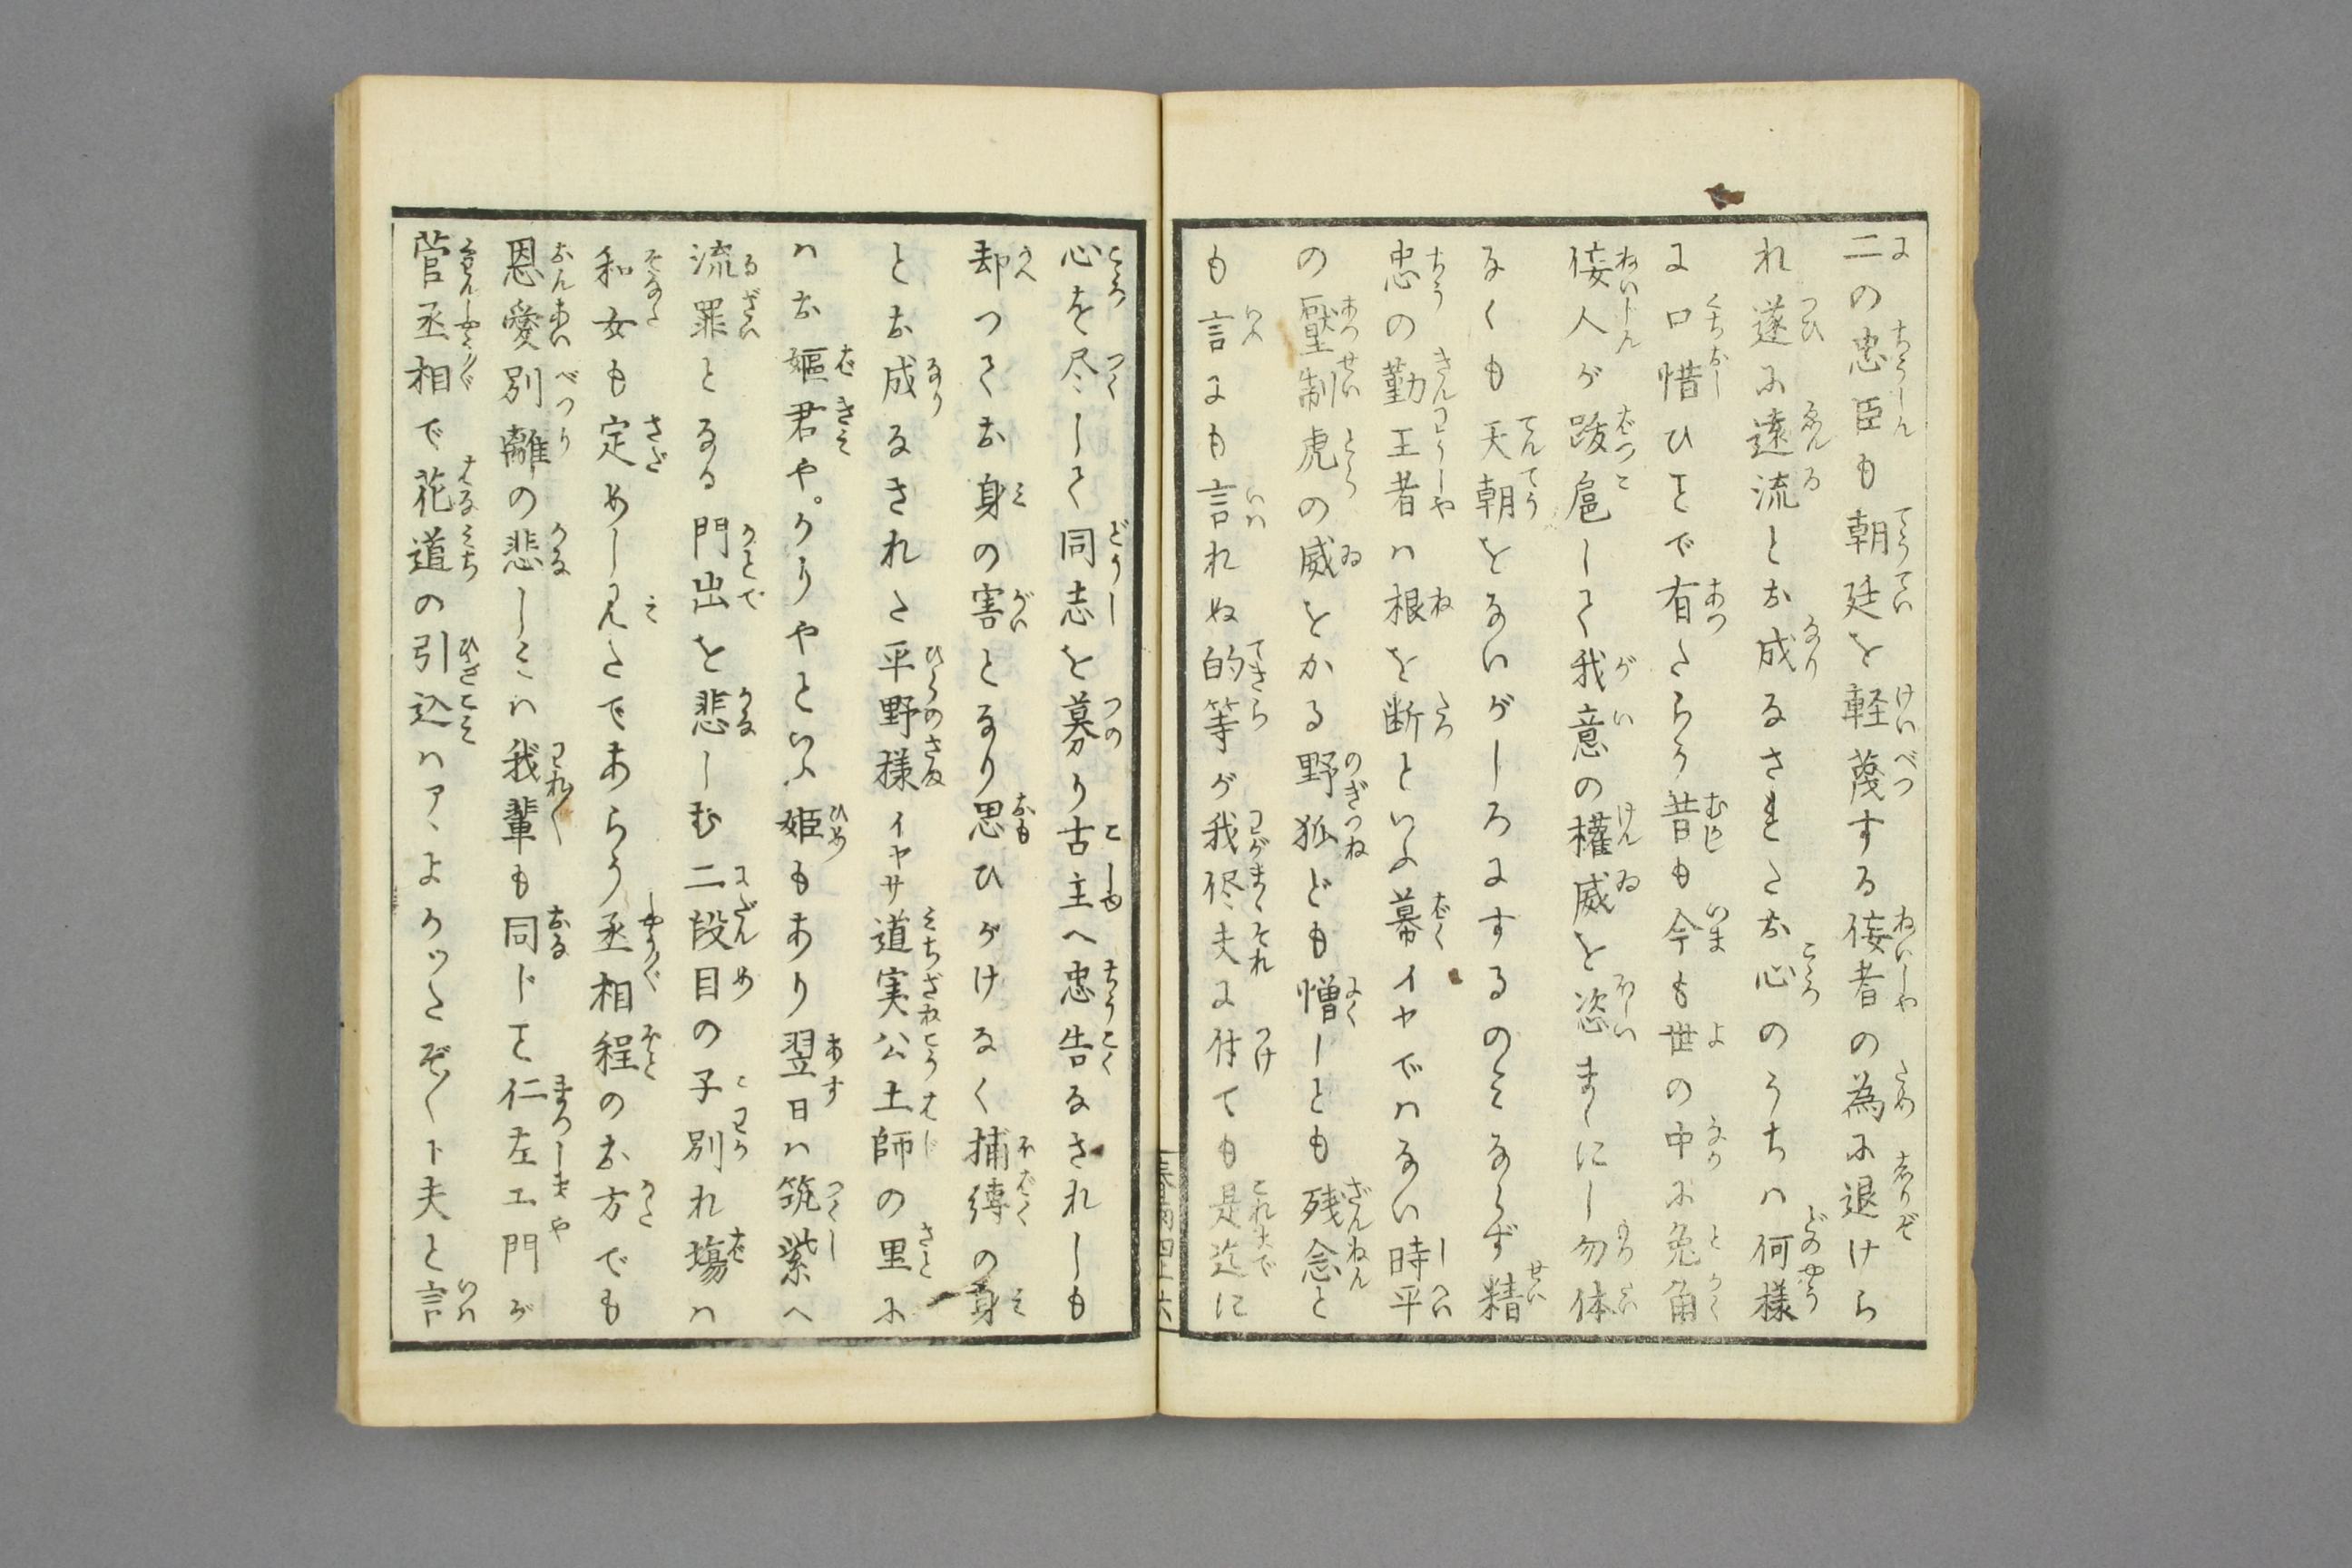 二の忠臣も朝廷を軽蔑する侫者の為に退けら
れ遂に遠流とお成なされたお心のうちハ何様
に口惜ひ𪜈で有たらう昔も今も世の中に兎角
侫人が跋扈して我意の權威を恣まゝにし勿体
なくも天朝をないがしろにするのみならず精
忠の勤王者ハ根を断といふ幕イヤでハない時平
の壓制虎の威をかる野狐ども憎しとも残念と
も言にも言れぬ的等が我侭夫に付ても是迄に
心を尽して同志を募り古主へ忠告なされしも
却つてお身の害となり思ひがけなく捕縛の身
とお成なされた平野様イヤサ道実公土師の里に
ハお嫗君や。かりやといふ姫もあり翌日ハ筑紫へ
流罪となる門出を悲しむ二段目の子別れ場ハ
和女も定めし見たであらう丞相程のお方でも
恩愛別離の悲しミハ我輩も同じ𪜈仁左エ門が
菅丞相で花道の引込ハアヽよかツたぞ〳〵ト夫と言